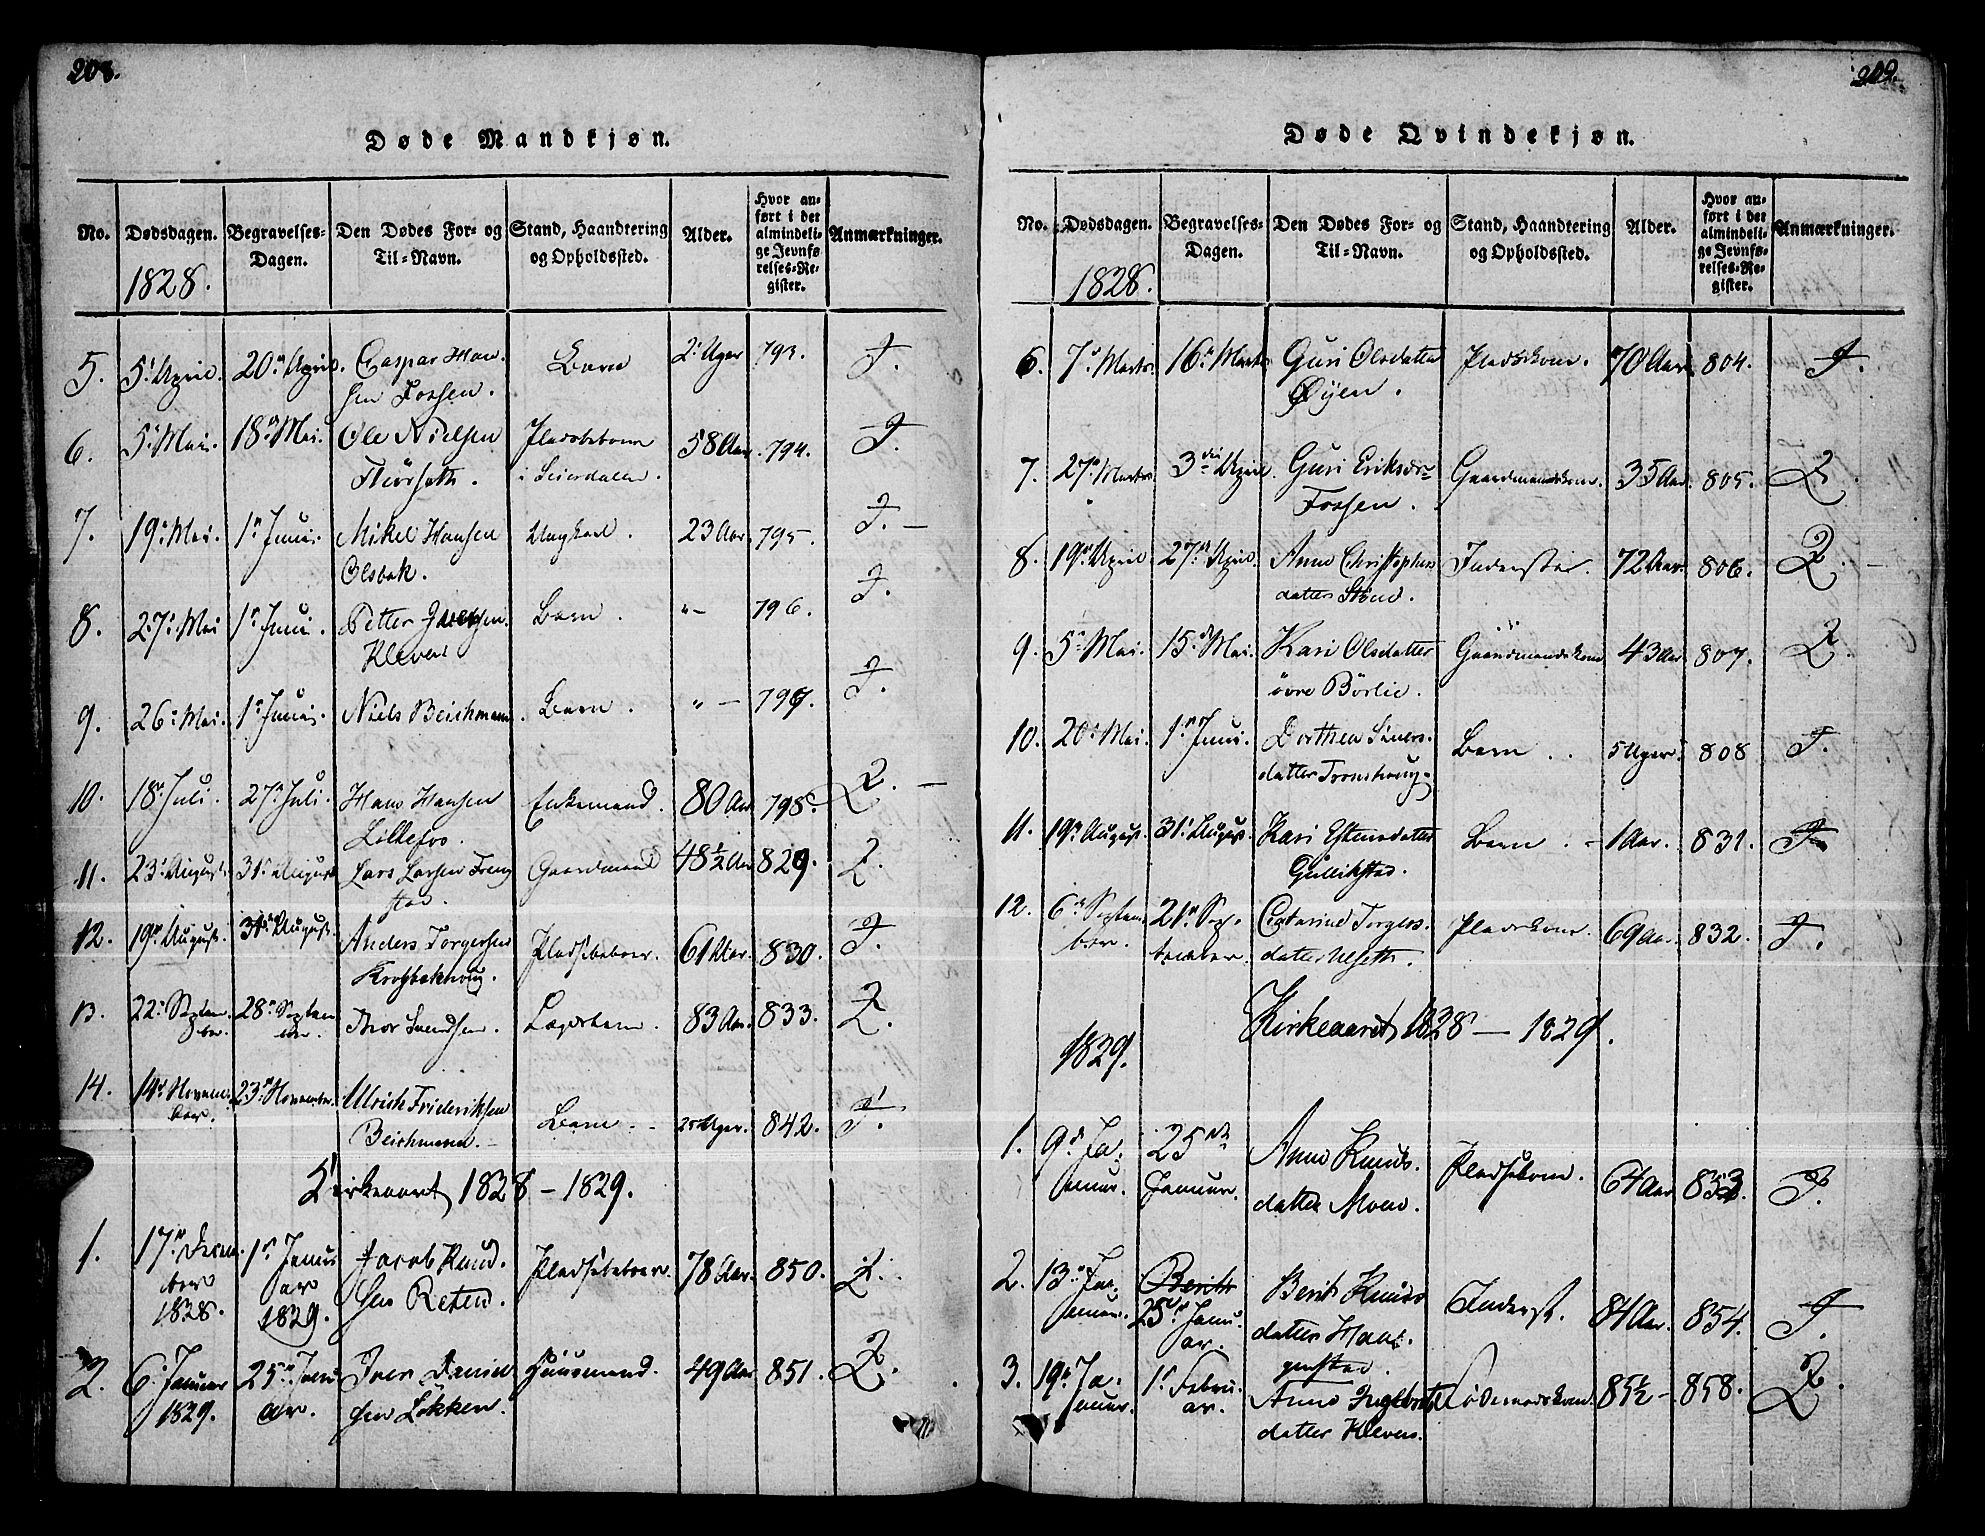 208.
Døde Mandkjøn.
No. Dødsdagen. Begravelses-Dagen. Den Dødes For- og Til-Navn. Stand, Haandtering og Opholdssted. Alder. Hvor anført i det almindelige Jevnførelses-Register. Anmærkninger.
1828.
5. 5. April. 20. April. Caspar Hansen Fossen. Barn 2. Uger 793. F.
6. 5. Mai. 18. Mai. Ole Nielsen 58 Aar. 794. F.
7. 19. Mai. 1. Juni. Mikel Hansen Olsbak. Ungkarl. 23 Aar. 795. F.
8. 27. Mai 1. Juni. Petter Kleven Barn. " 796. F.
9. 26. Mai. 1. Juni. Niels Beichmann. Barn. " 797. F.
10. 18. Juli. 27. Juli. Hans Hansen Lillefos. Enkemand. 80 Aar 798. L.
11. 23. August. 31. August Lars Larsen Gaardmand 48½ Aar 829. L.
12. 19. August. 31. August. Anders Torgersen Pladsebeboer. 61 Aar. 830. F.
13. 22. September. 28. September Thor Svendsen. 83 Aar. 833. L.
14. 14. November. 23. November. Ulrich Frideriksen Beichmann. Barn. 25 Uger. 842. F.
Kirkeaaret 1828 – 1829.
1. 17. December 1828. 1. Januar 1829. Jacob Knudsen Pladsebeboer. 78 Aar. 850. L.
2. 6. Januar 1829. 25. Januar. Iver Danielsen Løkken. Huusmand. 49 Aar 851. L.
209.
Døde Qvindekjøn.
No. Dødsdagen. Begravelses-Dagen. Den Dødes For- og Til-Navn. Stand, Haandtering og Opholdssted. Alder. Hvor anført i det almindelige Jevnførelses-Register. Anmærkninger.
1828.
6. 7. Marts. 16. Marts Guri Olsdatter Øyen. Pladskone. 70 Aar 804. F.
7. 27. Marts 3die April Guri Fossen. Gaardmandskone. 35 Aar. 805. L.
8. 19. April 27. April. Anne Christophersdatter Inderster. 72 Aar. 806. L.
9. 5. Mai. 15. Mai. Kari Olsdatter øvre Børlie. Gaardmandskone 43 Aar 807. L.
10. 20. Mai. 1. Juni. Dorthea Siversdatter Tronshoug. Barn 5 Uger. 808 F.
11. 19. August. 31. August. Kari Estensdatter Gullikstad. Barn. 1 Aar. 831. F.
12. 6. September. 21. September. Catarine Torgersdatter Ulseth. Pladskone. 69 Aar. 832. F.
Kirkeaaret 1828 — 1829.
1829.
1. 9. Januar. 25de Januar. Anne Knudsdatter Moen. Pladsekone. 64 Aar 853. F.
2. 13. Januar. Berith 25. Januar. Berit Knudsdatter Haagenstad. Inderst. 84 Aar. 854. F.
3. 19. Januar. 1. Februar. Anne Ingebrigtsdatter Kleven. Födemandskone. 85½ 858. L.